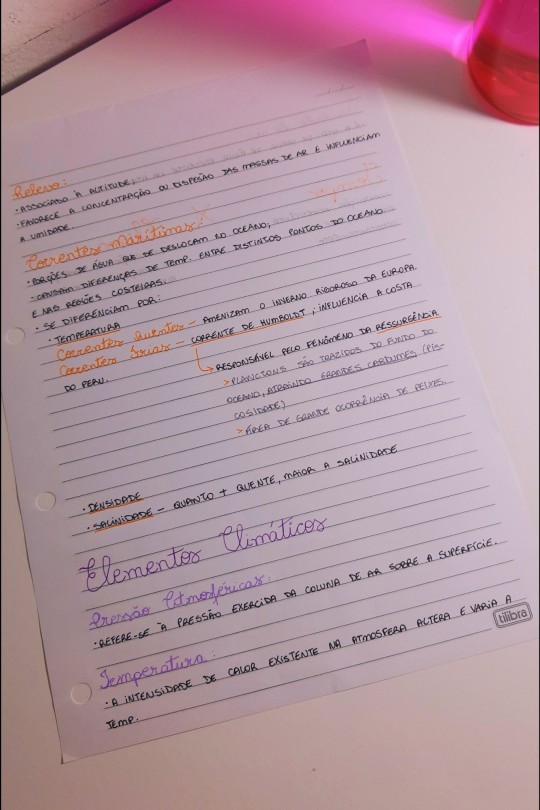 Relevo:
• ASSOCIADO À ALTITUDE;
• FAVORECE A CONCENTRAÇÃO OU DISPESÃO DAS MASSAS DE AR E INFLUENCIAM
A UMIDADE.
Correntes Marítimas:
• PORÇÕES DE ÁGUA QUE SE DESLOCAM NO OCEANO;
• CAUSAM DIFERENÇAS DE TEMP. ENTRE DISTINTOS PONTOS DO OCEANO
E NAS REGIÕES COSTEIRAS;
• SE DIFERENCIAM POR:
• TEMPERATURA
Correntes Quentes - AMENIZAM O INVERNO RIGOROSO DA EUROPA.
Correntes Frias - CORRENTE DE HUMBOLDT, INFLUENCIA A COSTA
DO PERU.
RESPONSÁVEL PELO FENÔMENO DA RESSURGÊNCIA
> PLANCTONS SÃO TRAZIDOS DO FUNDO DO
OCEANO, ATRAINDO GRANDES CARDUMES, (PIS-
COSIDADE)
> ÁREA DE GRANDE OCORRÊNCIA DE PEIXES.
• DENSIDADE
• SALINIDADE - QUANTO + QUENTE, MAIOR A SALINIDADE
Elementos Climáticos
Pressão Atmosféricas:
• REFERE-SE À PRESSÃO EXERCIDA DA COLUNA DE AR SOBRE A SUPERFÍCIE.
Temperatura:
• A INTENSIDADE DE CALOR EXISTENTE NA ATMOSFERA ALTERA E VARIA A
TEMP.
tilibra